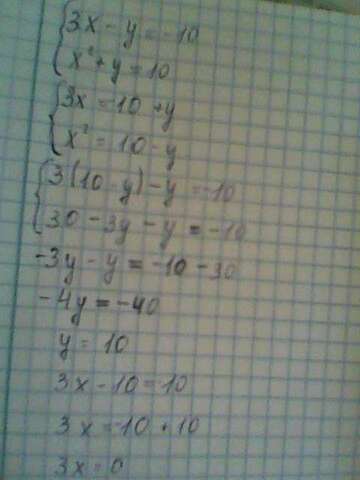 3x - y = -10
x² + y = 10
3x = -10 + y
x² = 10 - y
3(10 - y) - y = -10
30 - 3y - y = -10
-3y - y = -10 - 30
-4y = -40
y = 10
3x - 10 = 10
3x = -10 + 10
3x = 0